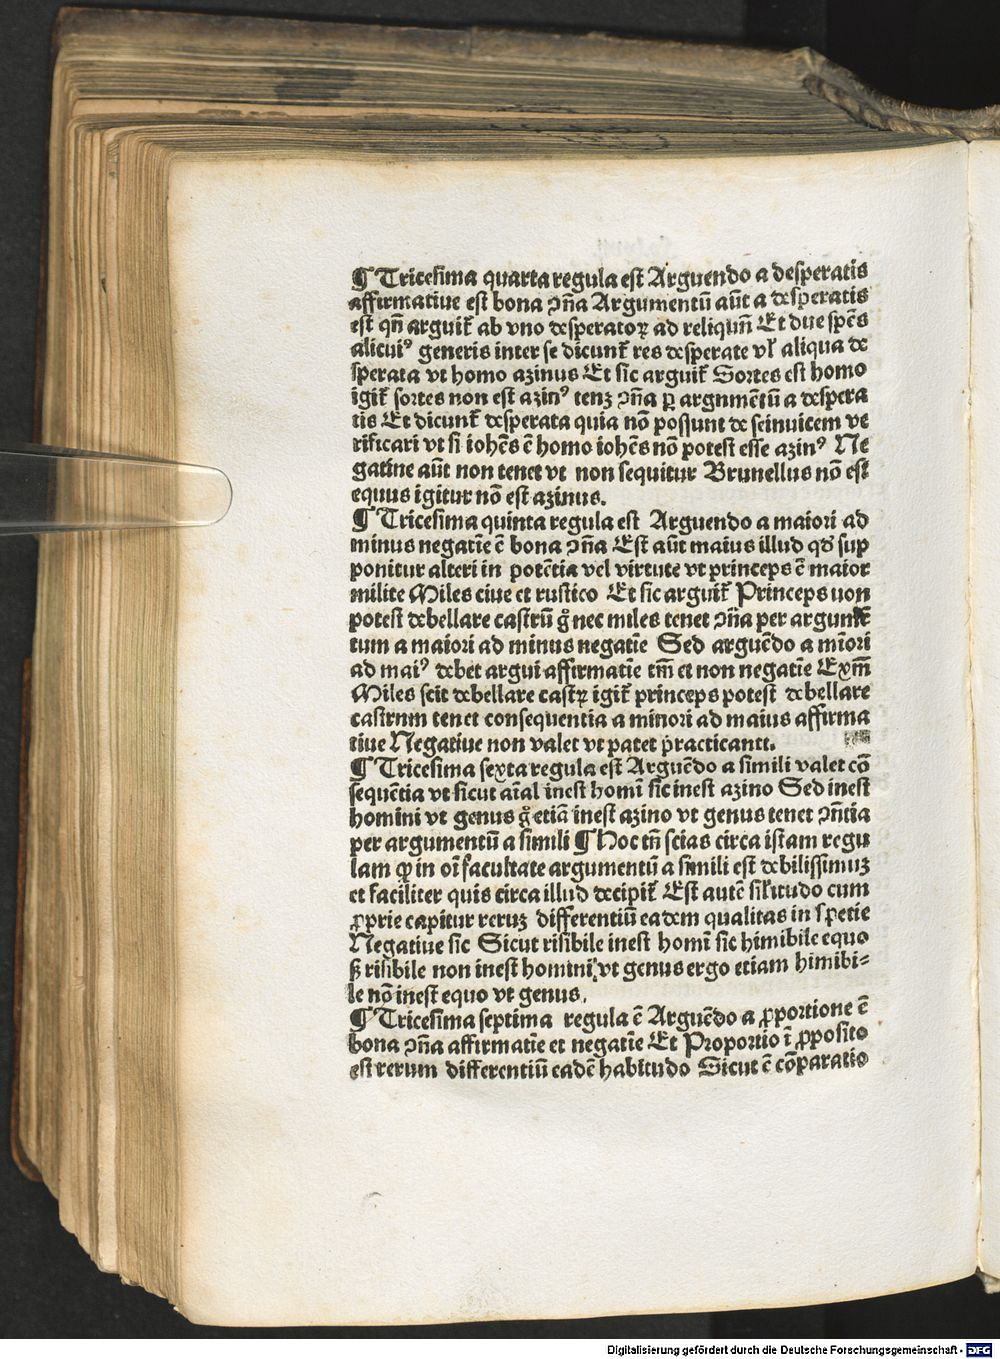 ¶ Tricesima quarta regula est Arguendo a desperatis
affirmatiue est bona ↄña Argumentū aūt a desperatis
est qñ arguit̄ ab vno desperatoꝝ ad reliquū Et due spēs
alicui⁹ generis inter se dicunt̄ res desperate vl̄ aliqua de
sperata vt homo azinus Et sic arguit̄ Sortes est homo
igit̄ sortes non est azin⁹ tenꝫ ↄña ꝑ argnmētū a despera
tis Et dicunt̄ desperata quia nō possunt de seinuicem ve
rificari vt si iohēs ē homo iohēs nō potest esse azin⁹ Ne
gatiue aūt non tenet vt non sequitur Brunellus nō est
equus igitur nō est azinus.
¶ Tricesima quinta regula est Arguendo a maiori ad
minus negatīe ē bona ↄña Est aūt maius illud qd̄ sup
ponitur alteri in potētia vel virtute vt princeps ē maior
milite Miles ciue et rustico Et sic arguit̄ Princeps uon
potest debellare castrū g̊ nec miles tenet ↄña per argumē
tum a maiori ad minus negatīe Sed arguēdo a mīori
ad mai⁹ debet argui affirmatīe tm̄ et non negatīe Exm̄
Miles scit debellare castꝝ igit̄ princeps potest debellare
castrnm tenet consequentia a minori ad maius affirma
tiue Negatiue non valet vt patet practicanti.
¶ Tricesima sexta regula est Arguēdo a simili valet cō
sequētia vt sicut aīal inest homī sic inest azino Sed inest
homini vt genus g̊ etiā inest azino vt genus tenet ↄñtia
per argumentū a simili ¶ Hoc tñ scias circa istam regu
lam ꝙ in oī facultate argumentū a simili est debilissimuꝫ
et faciliter quis circa illud decipit̄ Est autē sil̄itudo cum
ꝓprie capitur reruꝫ differentiū eadem qualitas in spetie
Negatiue sic Sicut risibile inest homī sic himibile equo
ꝭ risibile non inest homini, vt genus ergo etiam himibi⸗
le nō inest equo vt genus.
¶ Tricesima septima regula ē Arguēdo a ꝓportione ē
bona ↄña affirmatīe et negatīe Et Proportio ī ꝓposito
est rerum differentiū eadē habitudo Sicut ē cōparatio
Digitalisierung gefördert durch die Deutsche Forschungsgemeinschaft - DFG